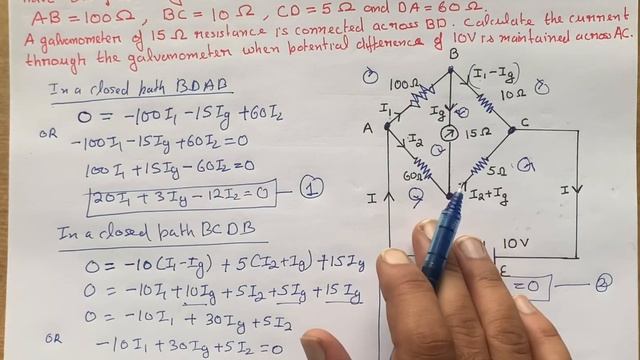 AB = 100 Ω, BC = 10 Ω, CD = 5 Ω and DA = 60 Ω.
A galvanometer of 15 Ω resistance is connected across BD. Calculate the current
through the galvanometer when potential difference of 10V is maintained across AC.
In a closed path BDAB
0 = -100I₁ -15Ig +60I₂
OR
-100I₁ -15Ig +60I₂ = 0
100I₁ +15Ig -60I₂ = 0
20I₁ + 3Ig -12I₂ = 0 1
In a closed path BCDB
0 = -10(I₁-Ig) + 5(I₂+Ig) +15Ig
0 = -10I₁ +10Ig +5I₂ +5Ig +15Ig
0 = -10I₁ + 30Ig +5I₂
OR
-10I₁ +30Ig +5I₂ = 0
B
100Ω
(I₁-Ig)
10Ω
I₁
Ig
15Ω
A
C
I₂
60Ω
5Ω
I₂+Ig
I
I
10V
E
= 0 2